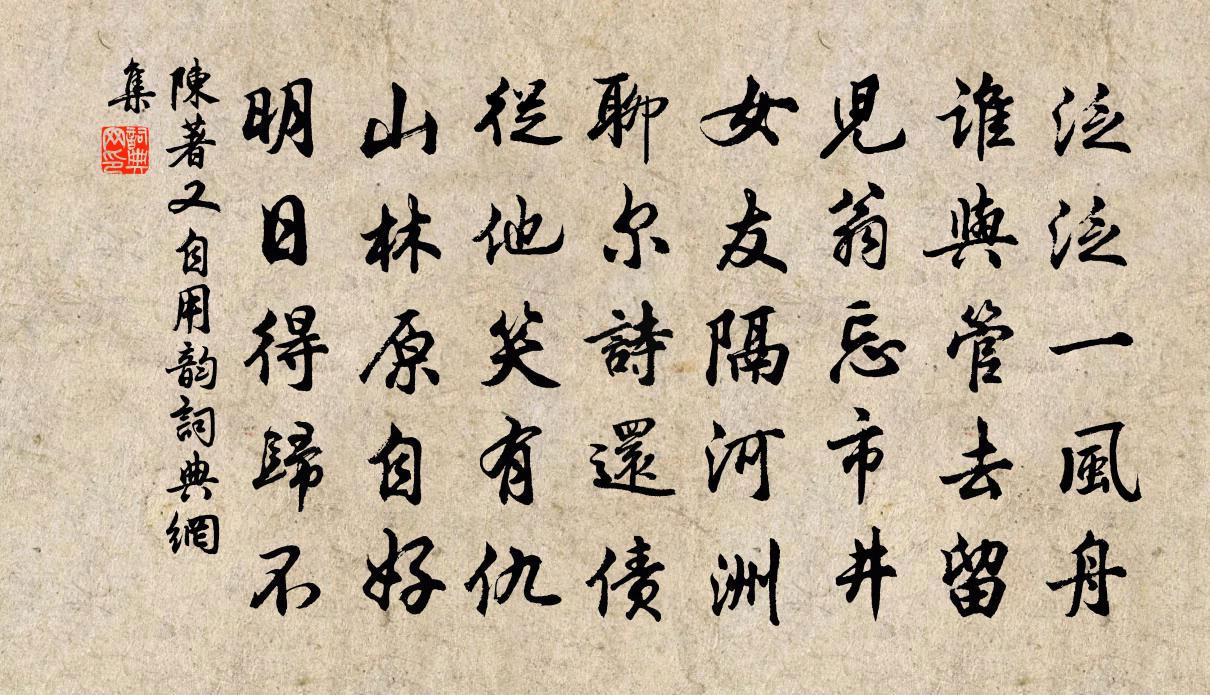 泛泛一風舟
誰與管去留
児翁忘市井
女友隔河洲
聊尔詩還債
從他笑有仇
山林原自好
明日得歸不
陳著又自用韵詞典網
集
詞典
网印